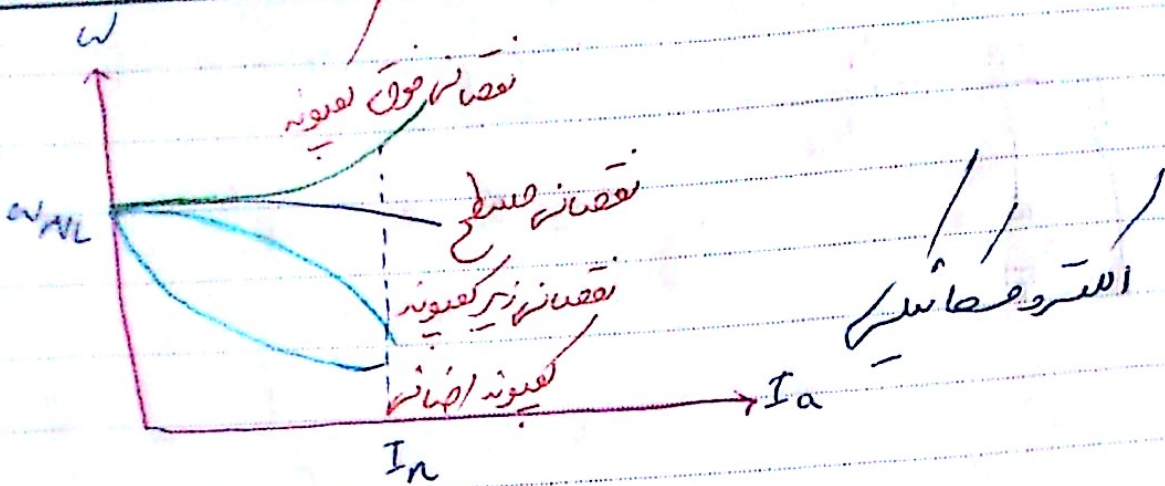 ω
نقصانی فوق کمپوند
ω_NL
نقصانی مسطح
نقصانی زیر کمپوند
کمپوند اضافی
الکترومکانیکی
I_a
I_n